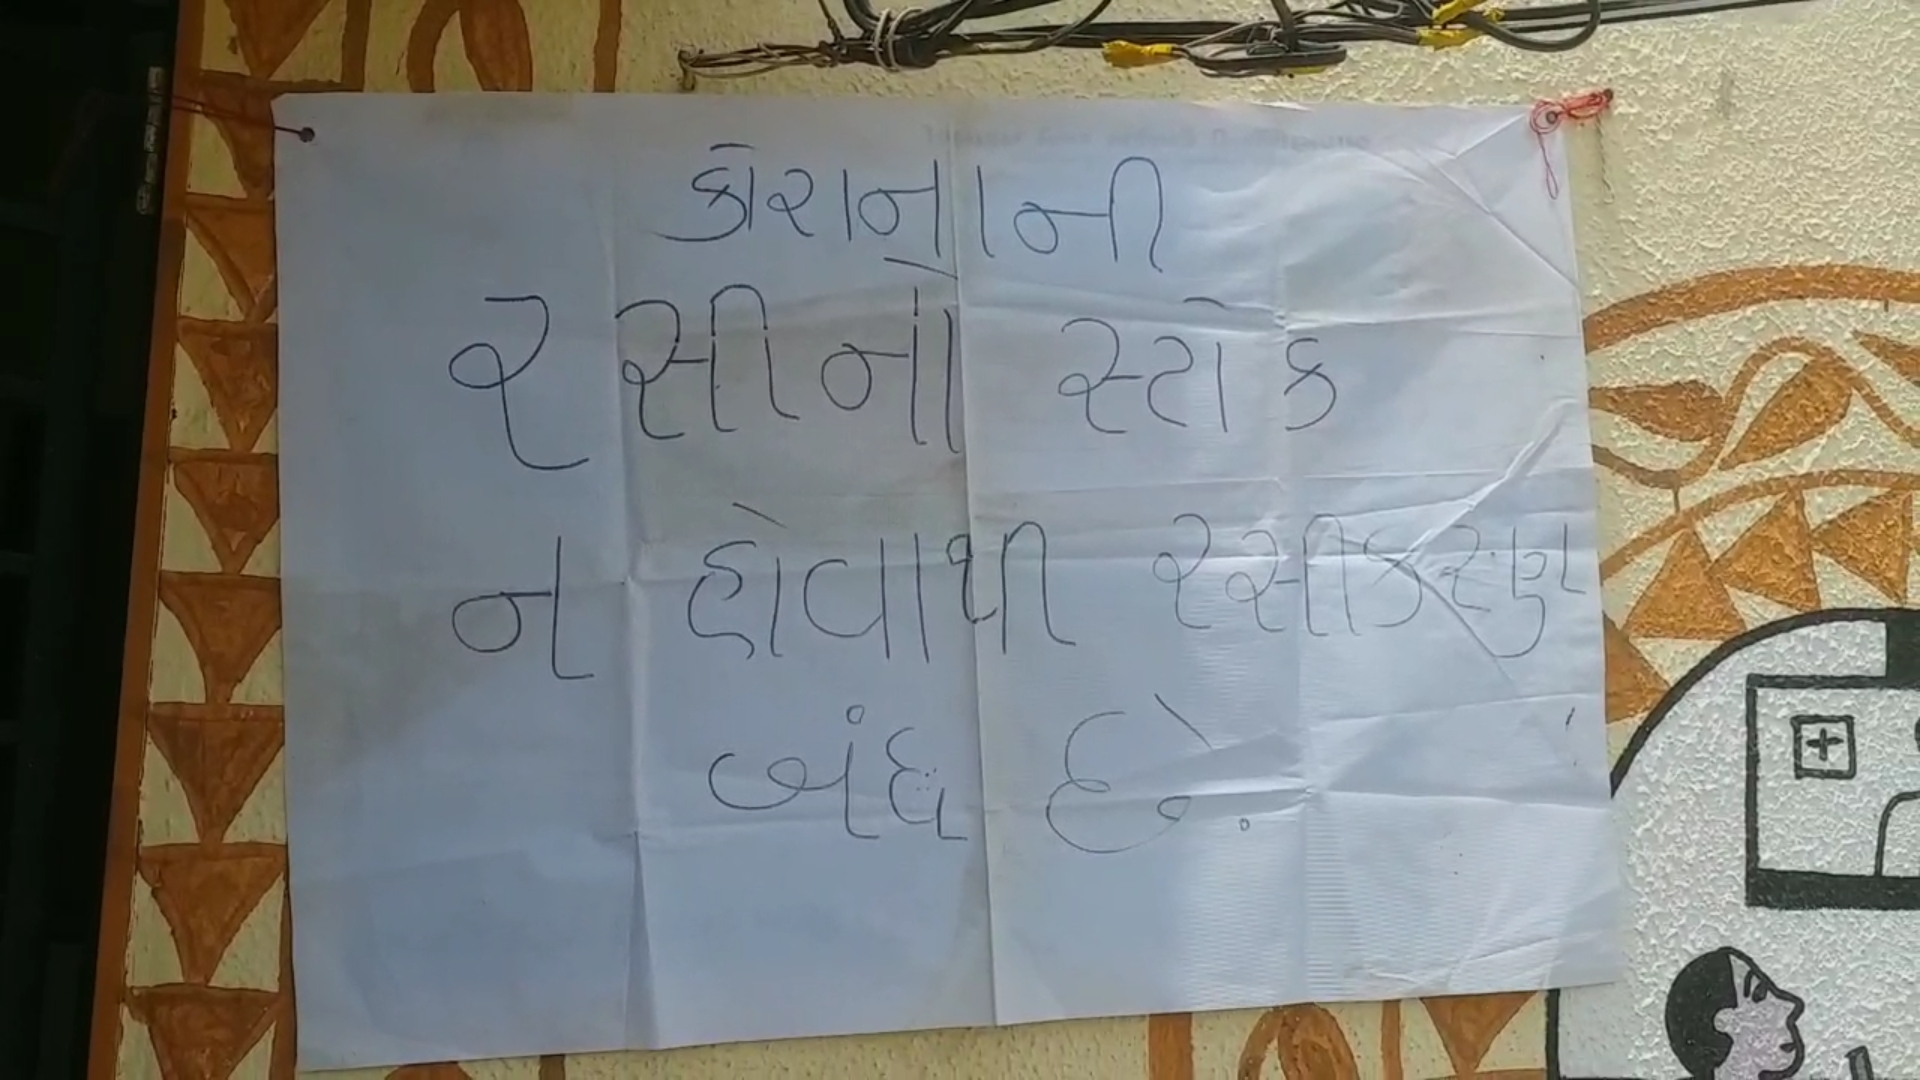 કોરાનાની
રસીનો સ્ટોક
ન હોવાથી રસીકરણ
બંધ છે.